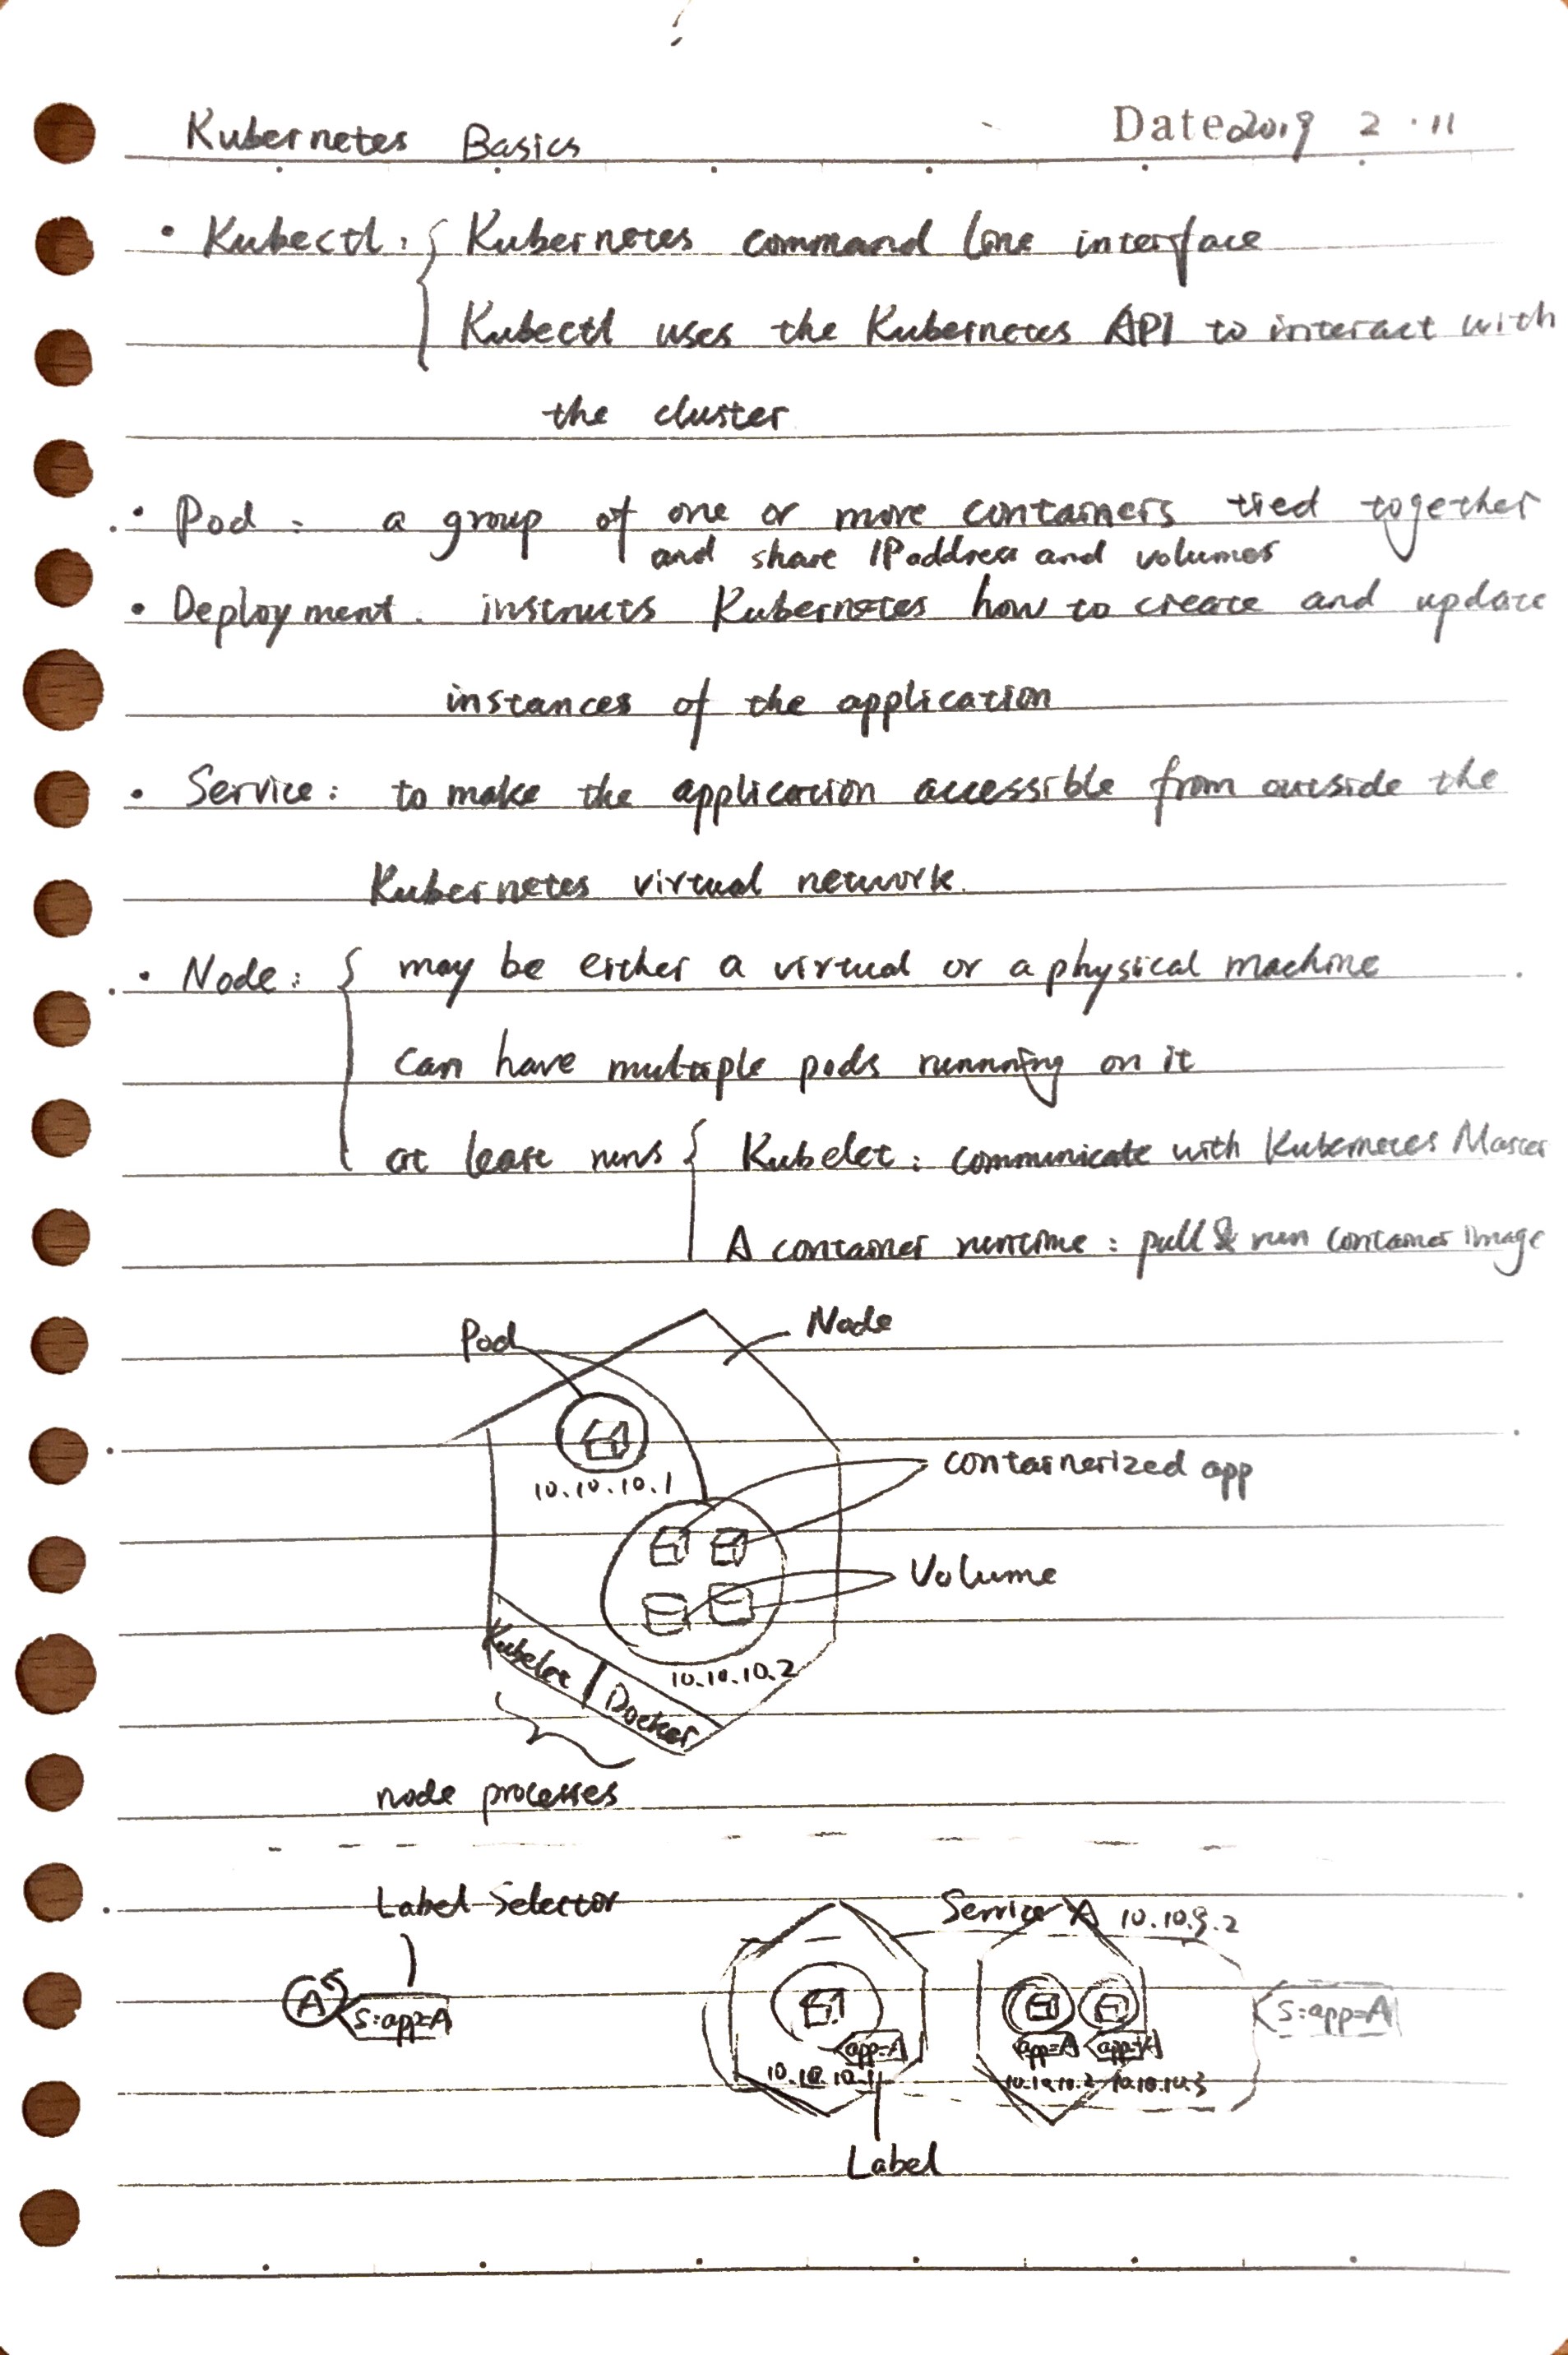 Kubernetes Basics Date 2019 2 · 11
• Kubectl : { Kubernetes command line interface
Kubectl uses the Kubernetes API to interact with
the cluster
• Pod : a group of one or more containers tied together
and share IP address and volumes
• Deployment . instructs Kubernetes how to create and update
instances of the application
• Service : to make the application accessible from outside the
Kubernetes virtual network.
• Node : { may be either a virtual or a physical machine
can have multiple pods running on it
at least runs { Kubelet : communicate with Kubernetes Master
A container runtime : pull & run container image
Pod Node
containerized app
10.10.10.1
Volume
10.10.10.2
Kubelet | Docker
node processes
Label Selector
Service A 10.10.9.2
A
s:app=A
s:app=A
app=A app=A app=A
10.10.10.1 10.10.10.2 10.10.10.3
Label